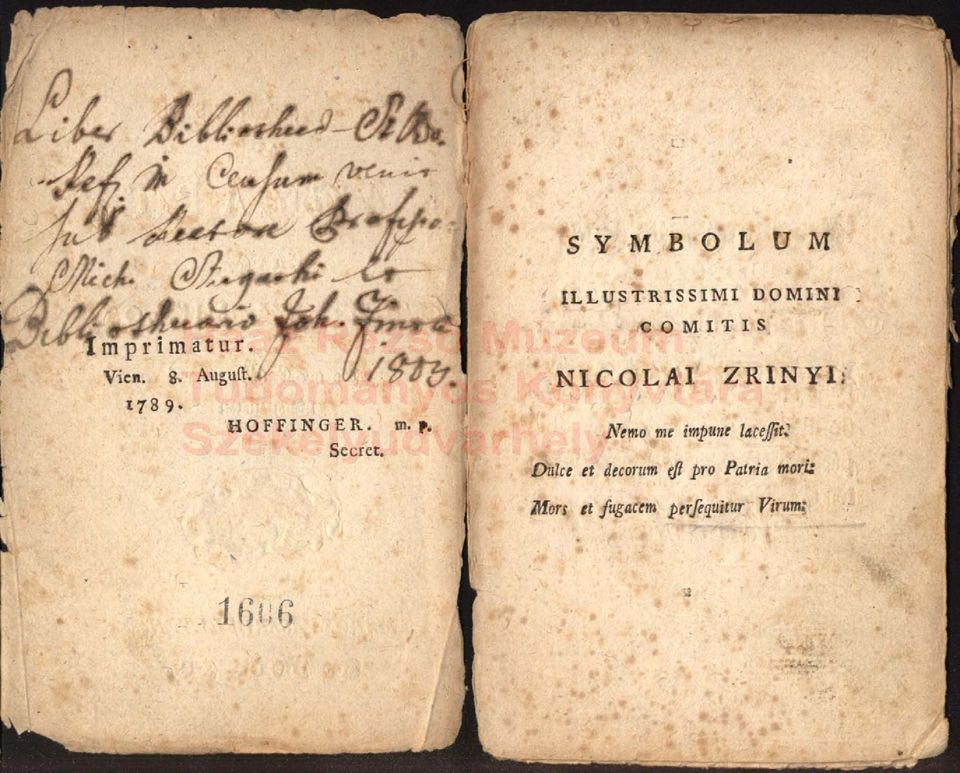 Liber
in Censum venit
sub Rectore
Mich.
Bibliothecario Joh.
1803.
Imprimatur.
Vien. 8. August.
1789.
HOFFINGER. m. p.
Secret.
1606
SYMBOLUM
ILLUSTRISSIMI DOMINI
COMITIS
NICOLAI ZRINYI:
Nemo me impune lacessit:
Dulce et decorum est pro Patria mori:
Mors et fugacem persequitur Virum:
Haáz Rezső Múzeum
Tudományos Könyvtára
Székelyudvarhely